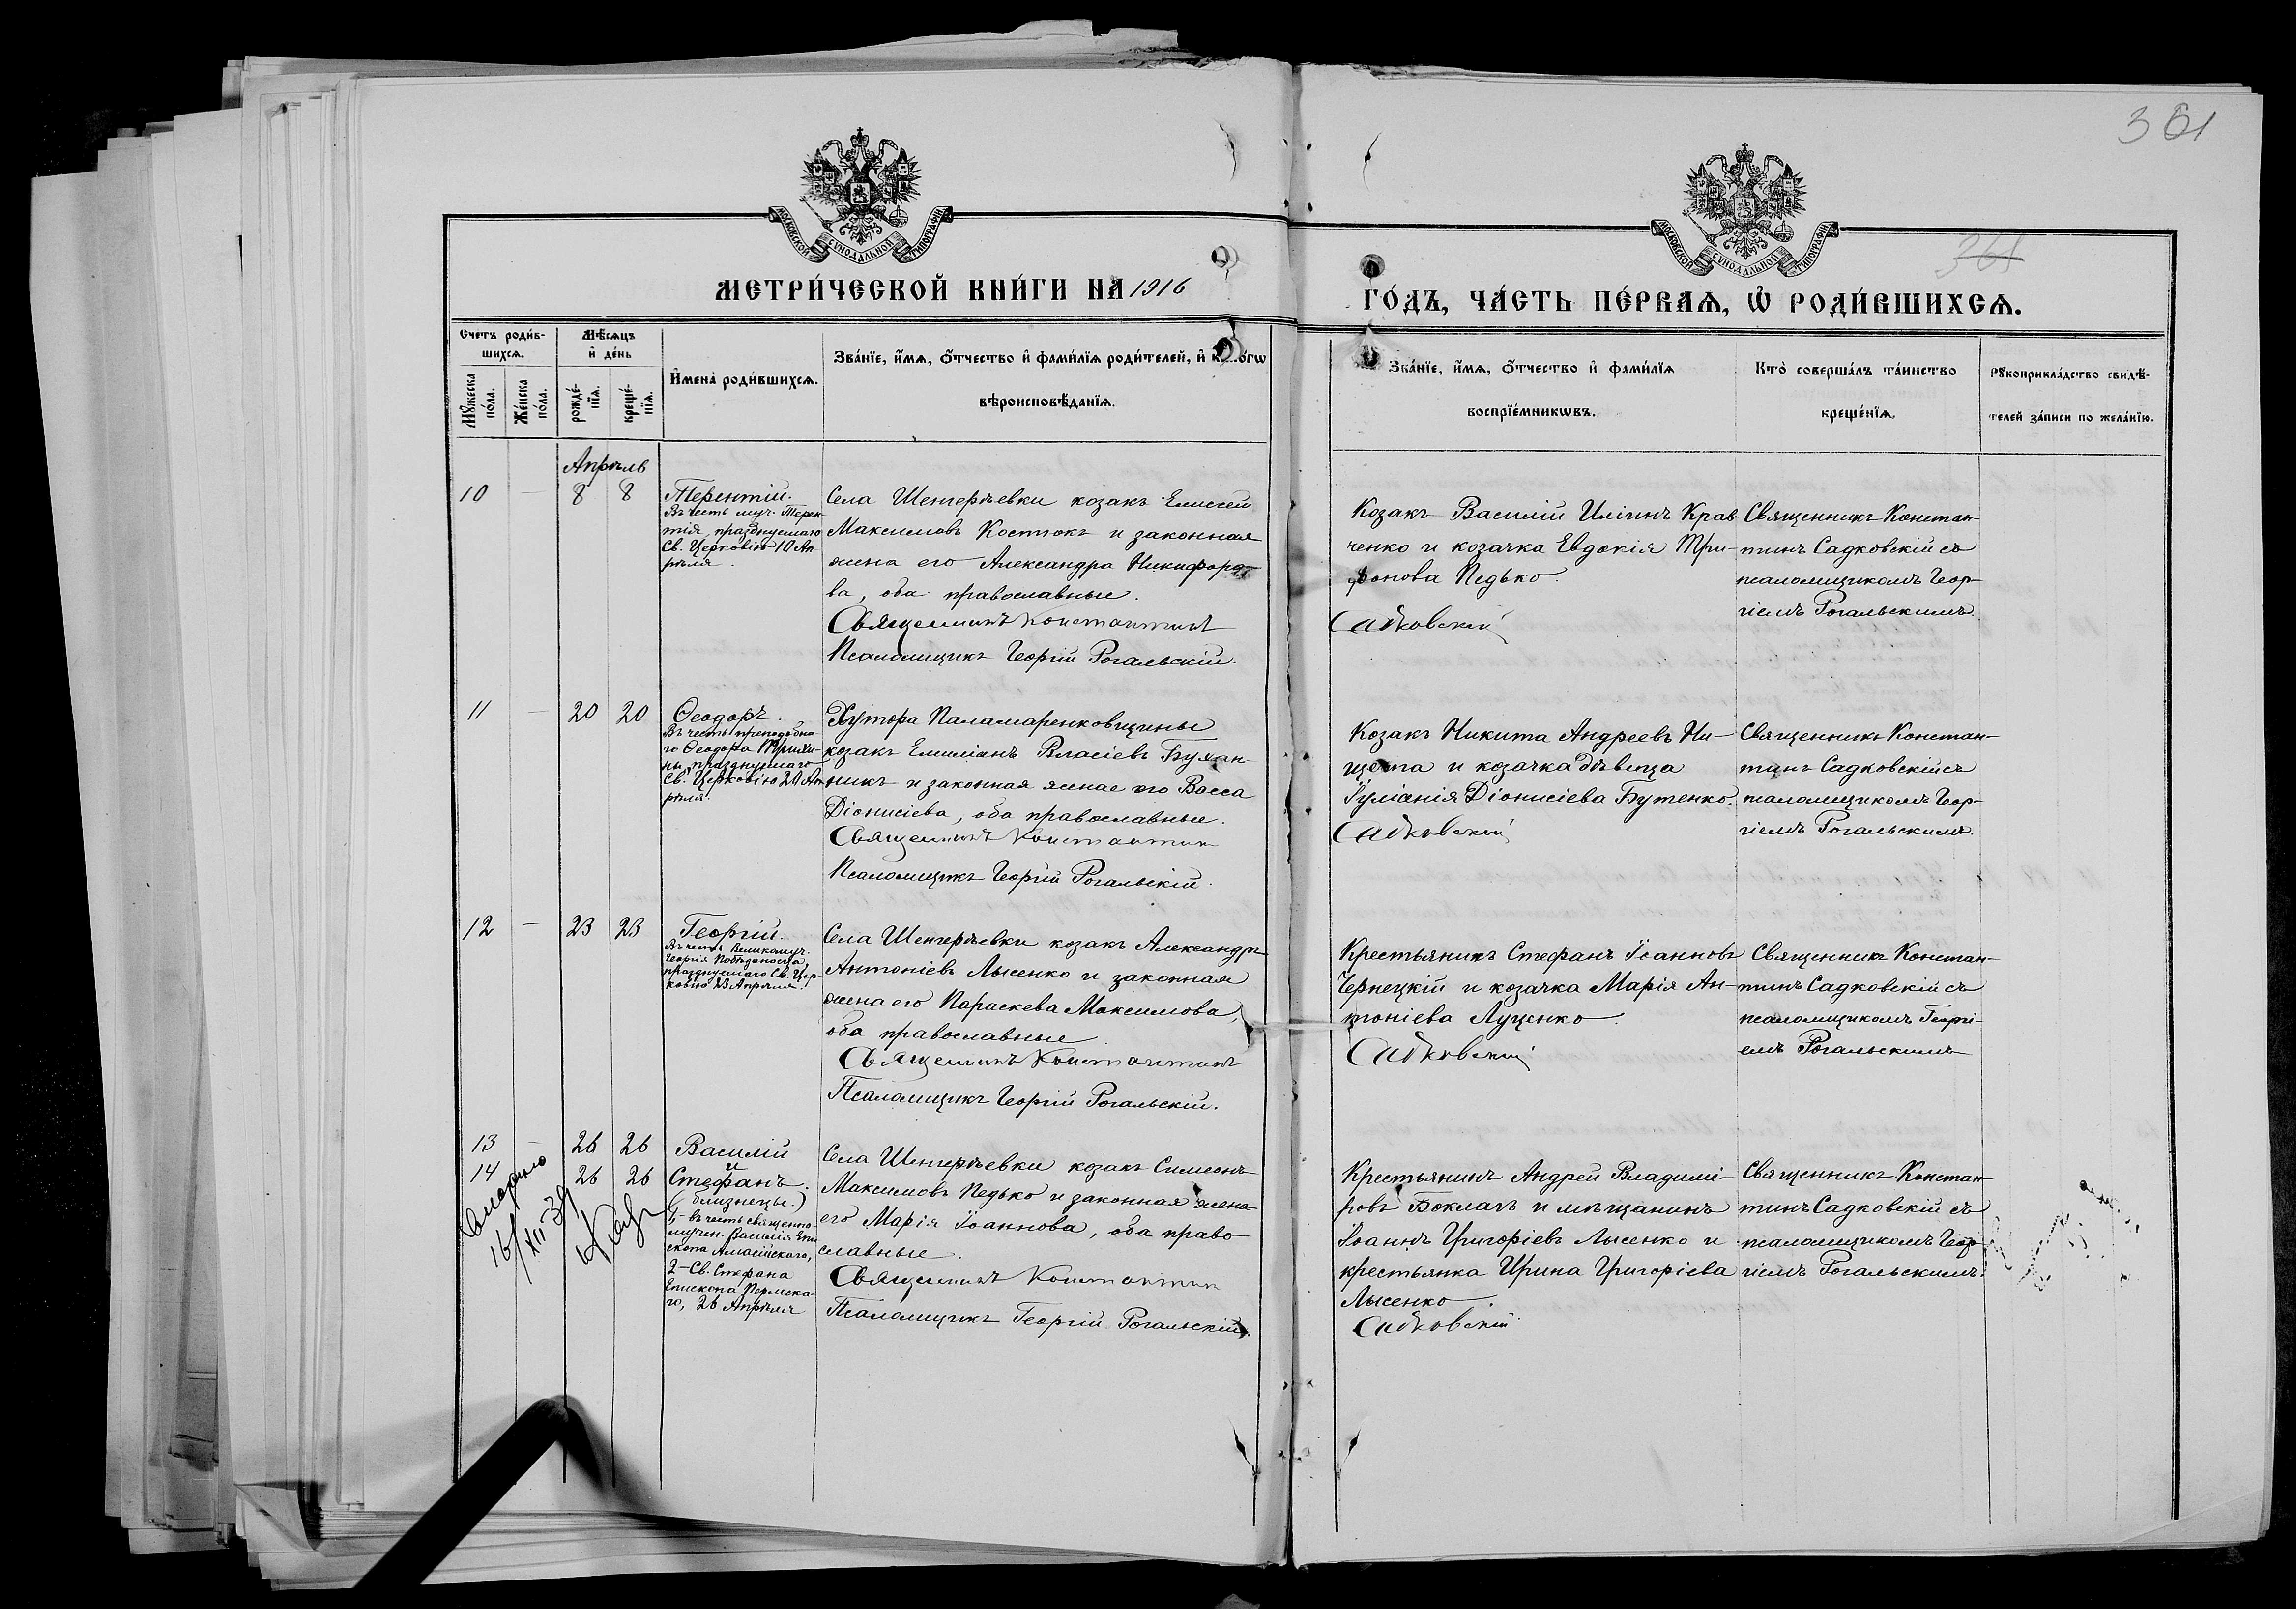 361
МОСКОВСКОЙ СУНОДАЛЬНОЙ ТИПОГРАФІИ
МОСКОВСКОЙ СУНОДАЛЬНОЙ ТИПОГРАФІИ
365
МЕТРИ́ЧЕСКОЙ КНИ́ГИ НА 1916
ГО́ДЪ, ЧА́СТЬ ПЕ́РВАѦ, Ѡ҆ РОДИ́ВШИХСѦ.
Счетъ роди́в-
шихсѧ.
Мꙋ́жеска
по́ла.
Же́нска
по́ла.
Мѣ́сѧцъ
и҆ де́нь
рожде́-
нїѧ.
креще́-
нїѧ.
И҆мена̀ роди́вшихсѧ.
Зва́нїе, и҆́мѧ, ѻ҆́тчество и҆ фами́лїѧ роди́телей, и҆
вѣроисповѣ́данїѧ.
Зва́нїе, и҆́мѧ, ѻ҆́тчество и҆ фами́лїѧ
воспрїе́мникѡвъ.
Кто̀ соверша́лъ та́инство
креще́нїѧ.
Рꙋкоприкла́дство свидѣ́-
телей за́писи по жела́нїю.
Апрѣль
10 — 8 8
Терентій.
Въ честь муч. Терен-
тія, празднуемаго
Св. Церковію 10 Ап
рѣля.
Села Шенгерѣевки козакъ Елисей
Максимовъ Костюкъ и законная
жена его Александра Никифоро-
ва, оба православные.
Священникъ Константинъ
Псаломщикъ Георгій Рогальскій.
Козакъ Василій Иліинъ Крав-
ченко и козачка Евдокія Три-
фонова Педько.
Садковскій
Священникъ Констан-
тинъ Садковскій съ
псаломщикомъ Геор-
гіемъ Рогальскимъ
11 — 20 20
Ѳеодоръ.
Въ честь преподобна-
го Ѳеодора Трихи-
ны, празднуемаго
Св. Церковію 20 Ап-
рѣля.
Хутора Паламаренковщины
козакъ Емиліанъ Власіевъ Бужан-
никъ и законная женае его Васса
Діонисіева, оба православные.
Священникъ Константин
Псаломщикъ Георгій Рогальскій.
Козакъ Никита Андреевъ Ни-
щета и козачка дѣвица
Іуліанія Діонисіева Бутенко.
Садковскій
Священникъ Констан-
тинъ Садковскій съ
псаломщикомъ Геор-
гіемъ Рогальскимъ.
12 — 23 23
Георгій.
Въ честь Великомуч.
Георгія Побѣдоносца,
празднуемаго Св. Цер-
ковію 23 Апрѣля.
Села Шенгерѣевки козакъ Александръ
Антоніевъ Лысенко и законная
жена его Параскева Максимова,
оба православные
Священникъ Константинъ
Псаломщикъ Георгій Рогальскій.
Крестьянинъ Стефанъ Іоанновъ
Чернецкій и козачка Марія Ан-
тоніева Луценко.
Садковскій
Священникъ Констан-
тинъ Садковскій съ
псаломщикомъ Георгі-
емъ Рогальскимъ
13 — 26 26
14 26 26
16/XII 39
Василій
и
Стефанъ.
(близнецы.)
1— въ честь священно-
мучен. Василія Епи
скопа Амасійскаго,
2— Св. Стефана
Епископа Пермска-
го, 26 Апрѣля
Села Шенгерѣевки козакъ Симеонъ
Максимовъ Педько и законная жена
его Марія Іоаннова, оба право-
славные.
Священникъ Константин
Псаломщикъ Георгій Рогальскій.
Крестьянинъ Андрей Владимі-
ровъ Боклагъ и мѣщанинъ
Іоаннъ Григоріевъ Лысенко и
крестьянка Ирина Григоріева
Лысенко.
Садковскій
Священникъ Констан-
тинъ Садковскій съ
псаломщикомъ Геор-
гіемъ Рогальскимъ.